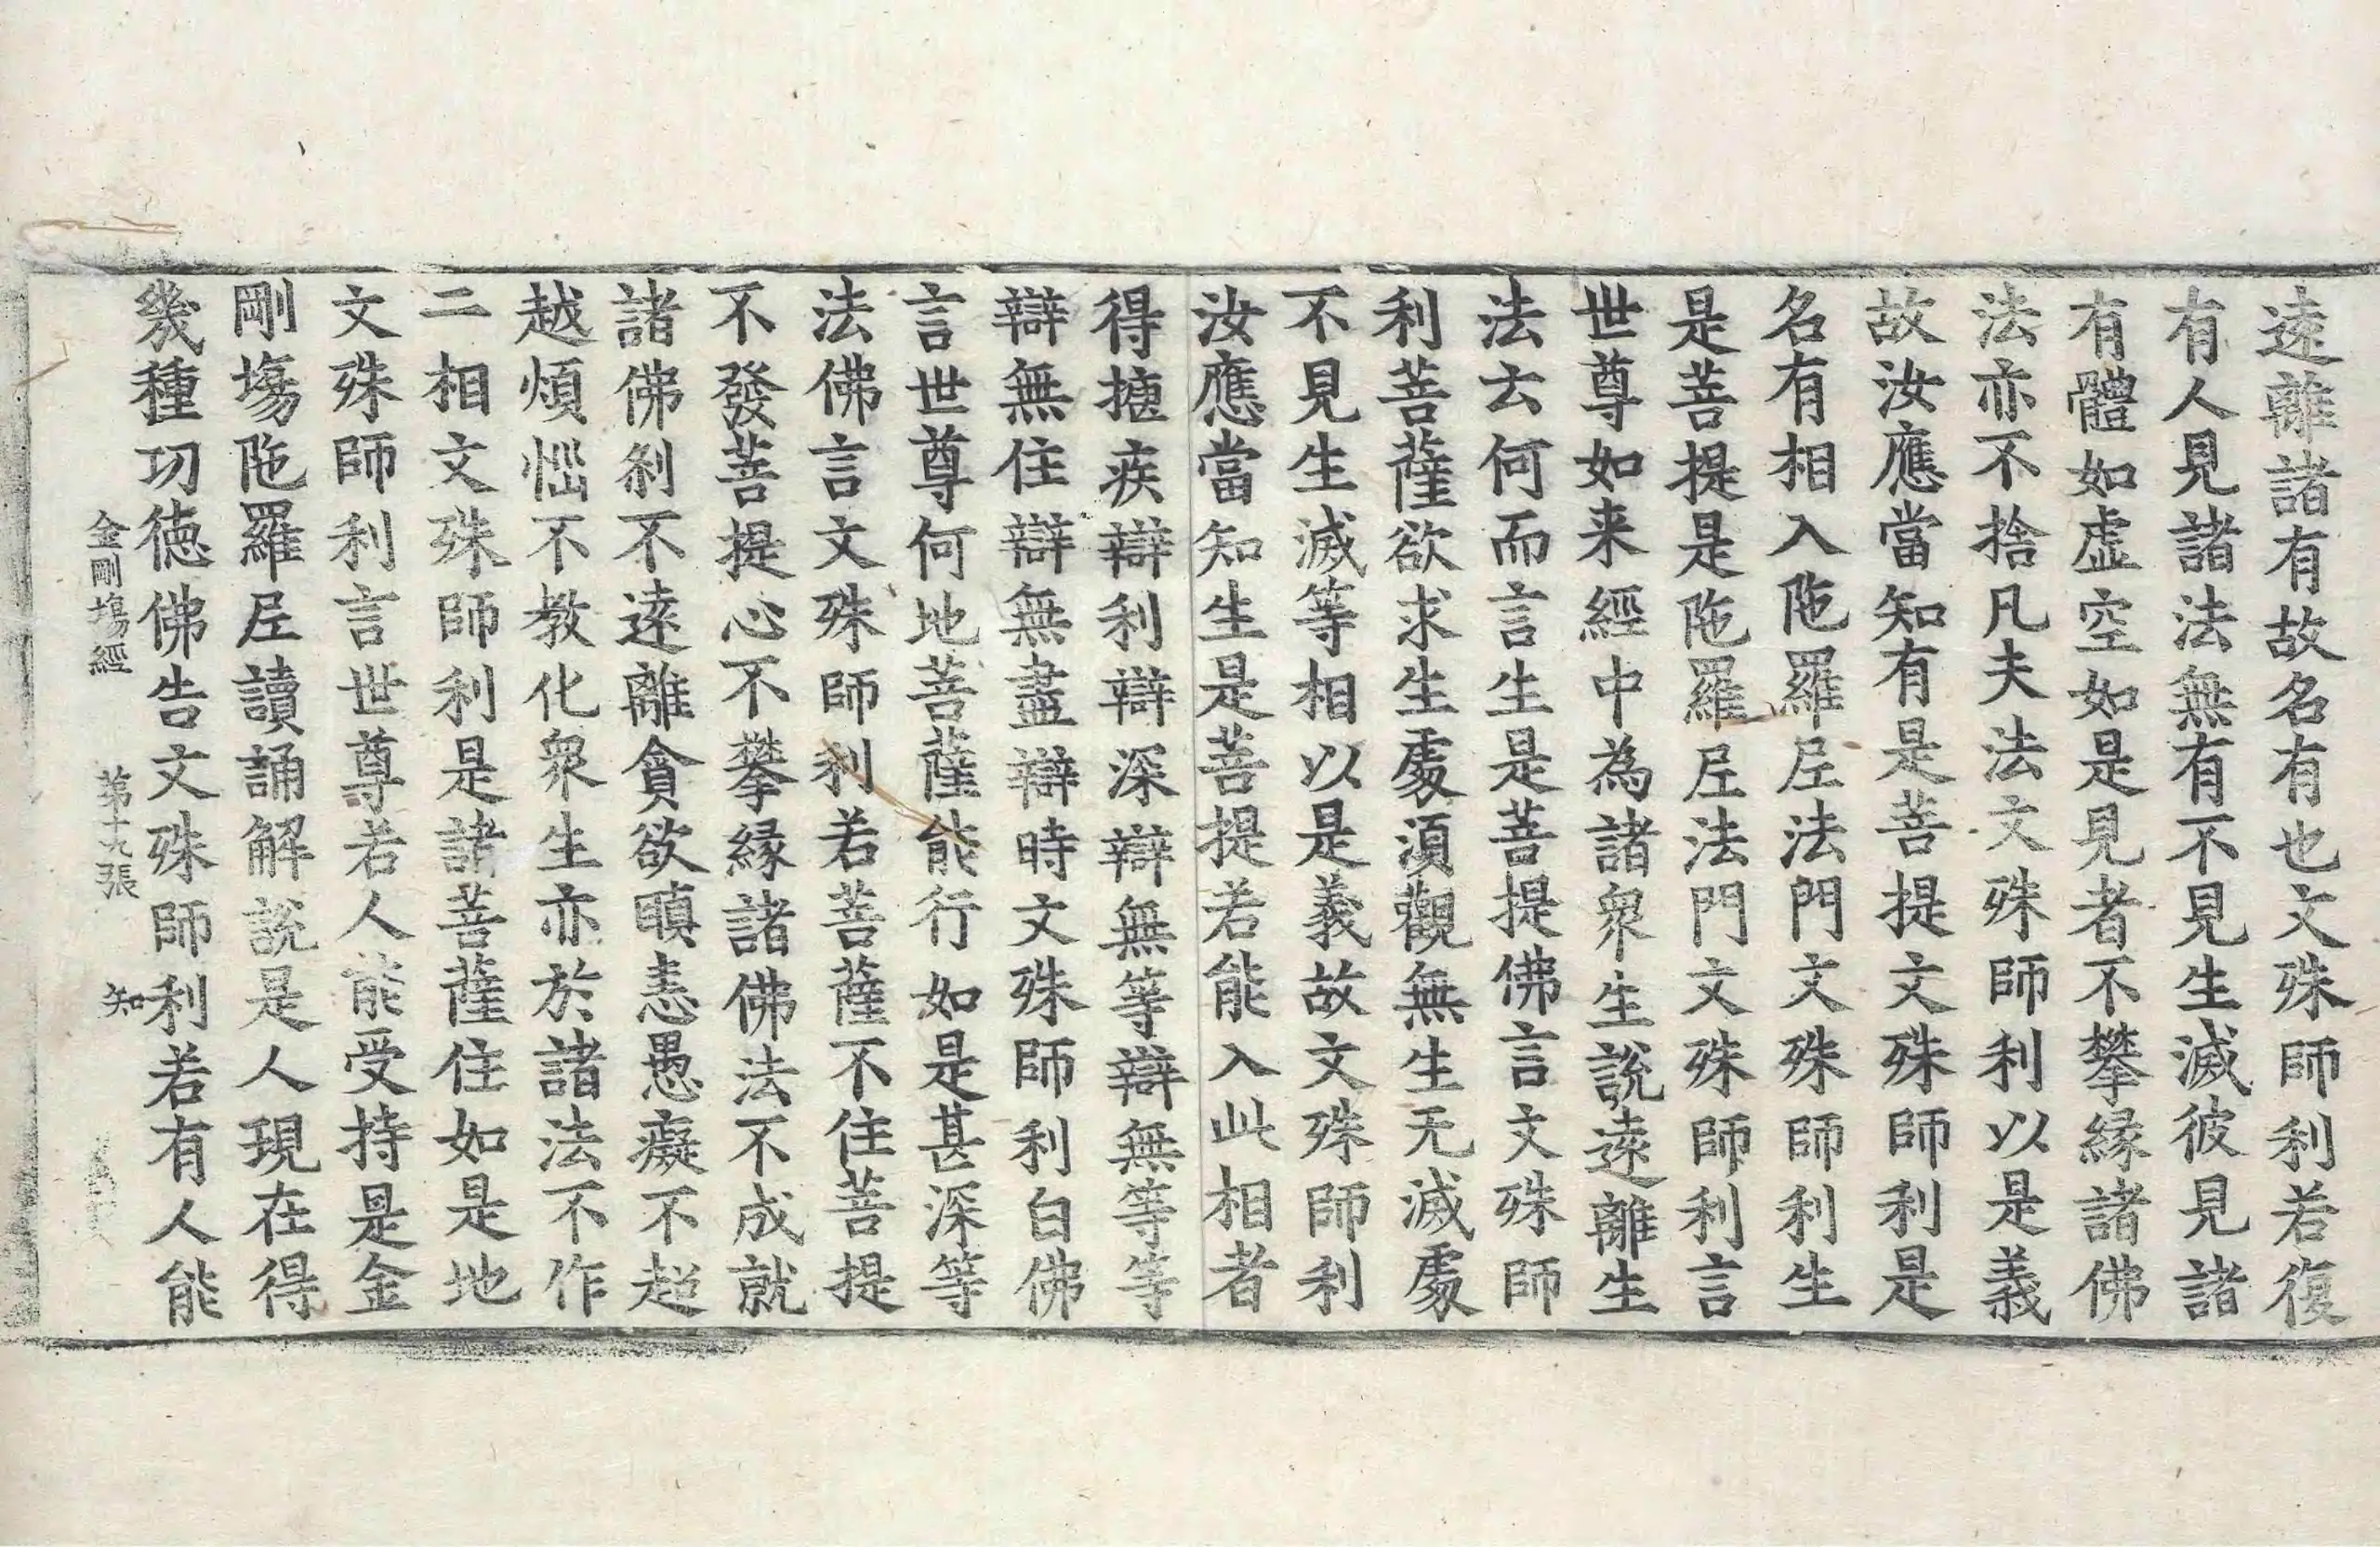 遠離諸有故名有也文殊師利若復
有人見諸法無有不見生滅彼見諸
有體如虛空如是見者不攀緣諸佛
法亦不捨凡夫法文殊師利以是義
故汝應當知有是菩提文殊師利是
名有相入陁羅𡰱法門文殊師利生
是菩提是陁羅𡰱法門文殊師利言
世尊如来經中為諸衆生說遠離生
法云何而言生是菩提佛言文殊師
利菩薩欲求生䖏湏觀無生无滅䖏
不見生滅等相以是義故文殊師利
汝應當知生是菩提若能入此相者
得揔疾辯利辯深辯無等辯無等等
辯無住辯無盡辯時文殊師利白佛
言世尊何地菩薩能行如是甚深等
法佛言文殊師利若菩薩不住菩提
不發菩提心不攀緣諸佛法不成就
諸佛刹不遠離貪欲瞋恚愚癡不超
越煩惱不教化衆生亦於諸法不作
二相文殊師利是諸菩薩住如是地
文殊師利言世尊若人能受持是金
剛塲陁羅𡰱讀誦解說是人現在得
幾種功徳佛告文殊師利若有人能
金剛塲經 苐十九張 知